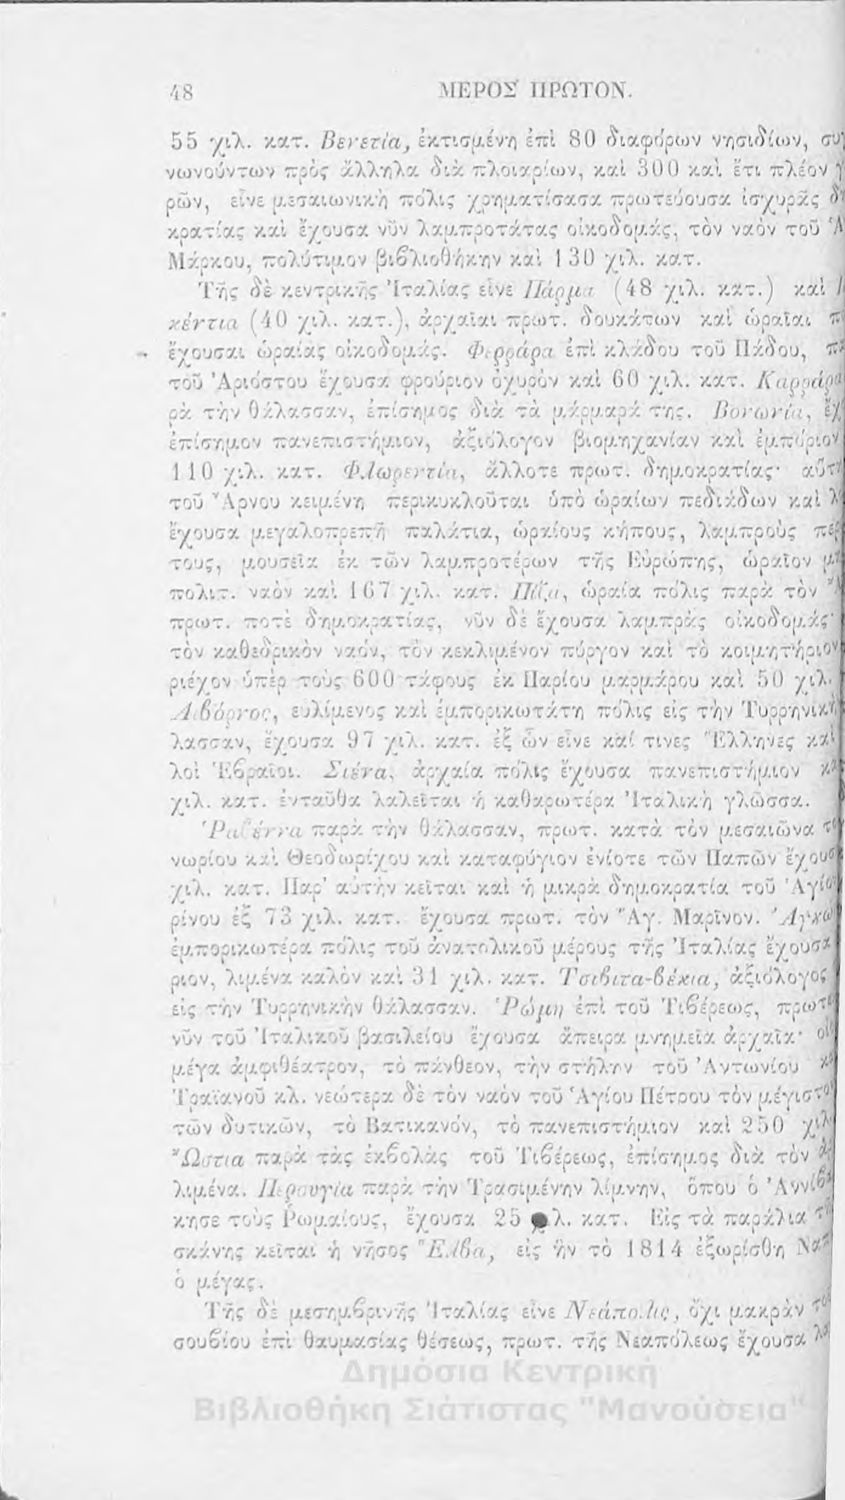 48 ΜΕΡΟΣ ΠΡΩΤΟΝ.
55 χιλ. κατ. Βενετία, ἐκτισμένη ἐπὶ 80 διαφόρων νησιδίων,
νωνούντων πρὸς ἄλληλα διὰ πλοιαρίων, καὶ 300 καὶ ἔτι πλέον
ρῶν, εἶνε μεσαιωνικὴ πόλις χρηματίσασα πρωτεύουσα ἰσχυρᾶς
κρατίας καὶ ἔχουσα νῦν λαμπροτάτας οἰκοδομάς, τὸν ναὸν τοῦ
Μάρκου, πολύτιμον βιβλιοθήκην καὶ 130 χιλ. κατ.
Τῆς δὲ κεντρικῆς Ἰταλίας εἶνε Πάρμα (48 χιλ. κατ.) καὶ
κέντια (40 χιλ. κατ.), ἀρχαῖαι πρωτ. δουκάτων καὶ ὡραῖαι
ἔχουσαι ὡραίας οἰκοδομάς. Φερράρα ἐπὶ κλάδου τοῦ Πάδου,
τοῦ Ἀριόστου ἔχουσα φρούριον ὀχυρὸν καὶ 60 χιλ. κατ. Καρράρα
ρὰ τὴν θάλασσαν, ἐπίσημος διὰ τὰ μάρμαρά της. Βονωνία,
ἐπίσημον πανεπιστήμιον, ἀξιόλογον βιομηχανίαν καὶ ἐμπόριον
110 χιλ. κατ. Φλωρεντία, ἄλλοτε πρωτ. δημοκρατίας·
τοῦ Ἄρνου κειμένη περικυκλοῦται ὑπὸ ὡραίων πεδιάδων καὶ
ἔχουσα μεγαλοπρεπῆ παλάτια, ὡραίους κήπους, λαμπροὺς
τους, μουσεῖα ἐκ τῶν λαμπροτέρων τῆς Εὐρώπης, ὡραῖον
πολιτ. ναὸν καὶ 167 χιλ. κατ. Πίζα, ὡραία πόλις παρὰ τὸν
πρωτ. ποτὲ δημοκρατίας, νῦν δὲ ἔχουσα λαμπρὰς οἰκοδομάς·
τὸν καθεδρικὸν ναόν, τὸν κεκλιμένον πύργον καὶ τὸ κοιμητήριον
ριέχον ὑπὲρ τοὺς 600 τάφους ἐκ Παρίου μαρμάρου καὶ 50 χιλ.
Λιβόρνος, εὐλίμενος καὶ ἐμπορικωτάτη πόλις εἰς τὴν Τυρρηνικὴν
λασσαν, ἔχουσα 97 χιλ. κατ. ἐξ ὧν εἶνε καί τινες Ἕλληνες καὶ
λοὶ Ἑβραῖοι. Σιένα, ἀρχαία πόλις ἔχουσα πανεπιστήμιον
χιλ. κατ. ἐνταῦθα λαλεῖται ἡ καθαρωτέρα Ἰταλικὴ γλῶσσα.
Ῥαβέννα παρὰ τὴν θάλασσαν, πρωτ. κατὰ τὸν μεσαιῶνα
νωρίου καὶ Θεοδωρίχου καὶ καταφύγιον ἐνίοτε τῶν Παπῶν
χιλ. κατ. Παρ' αὐτὴν κεῖται καὶ ἡ μικρὰ δημοκρατία τοῦ Ἁγίου
ρίνου ἐξ 73 χιλ. κατ. ἔχουσα πρωτ. τὸν Ἅγ. Μαρῖνον.
ἐμπορικωτέρα πόλις τοῦ ἀνατολικοῦ μέρους τῆς Ἰταλίας ἔχουσα
ριον, λιμένα καλὸν καὶ 31 χιλ. κατ. Τσιβιτα-βέκια, ἀξιόλογος
εἰς τὴν Τυρρηνικὴν θάλασσαν. Ῥώμη ἐπὶ τοῦ Τιβέρεως,
νῦν τοῦ Ἰταλικοῦ βασιλείου ἔχουσα ἄπειρα μνημεῖα ἀρχαῖα·
μέγα ἀμφιθέατρον, τὸ πάνθεον, τὴν στήλην τοῦ Ἀντωνίου
Τραϊανοῦ κλ. νεώτερα δὲ τὸν ναὸν τοῦ Ἁγίου Πέτρου τὸν μέγιστον
τῶν δυτικῶν, τὸ Βατικανόν, τὸ πανεπιστήμιον καὶ 250 χιλ.
Ὥστια παρὰ τὰς ἐκβολὰς τοῦ Τιβέρεως, ἐπίσημος διὰ τὸν
λιμένα. Περουγία παρὰ τὴν Τρασιμένην λίμνην, ὅπου ὁ
κησε τοὺς Ῥωμαίους, ἔχουσα 25 χιλ. κατ. Εἰς τὰ παράλια
σκάνης κεῖται ἡ νῆσος Ἔλβα, εἰς ἣν τὸ 1814 ἐξωρίσθη
ὁ μέγας.
Τῆς δὲ μεσημβρινῆς Ἰταλίας εἶνε Νεάπολις, ὄχι μακρὰν
σουβίου ἐπὶ θαυμασίας θέσεως, πρωτ. τῆς Νεαπόλεως ἔχουσα
Δημόσια Κεντρική
Βιβλιοθήκη Σιάτιστας "Μανούσεια"